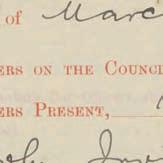 of Marc
ERS ON THE COUNCI
ERS PRESENT,